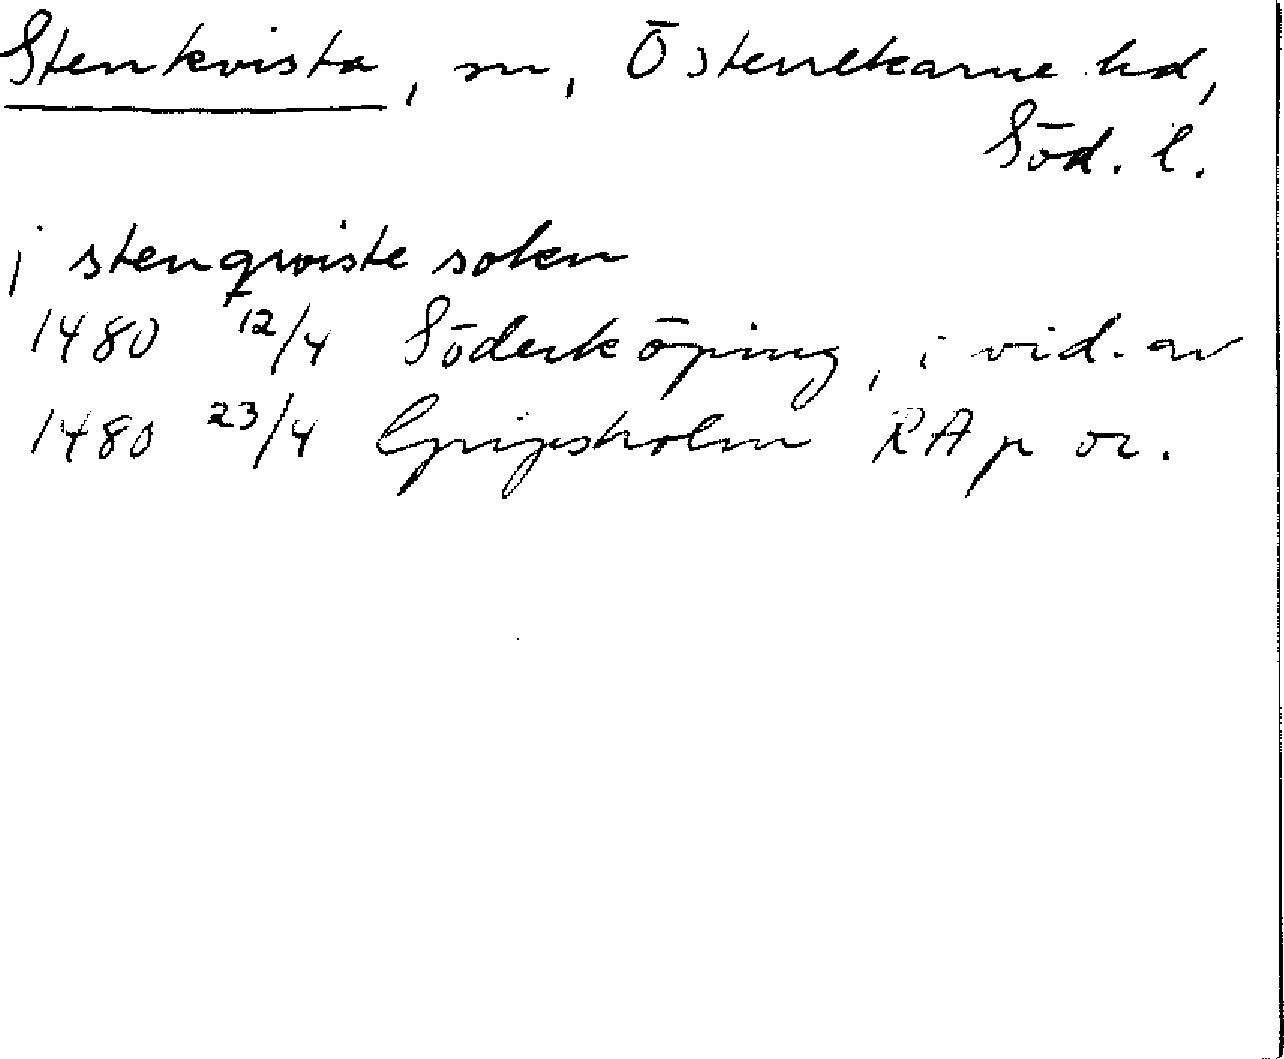 Stenkvista, sn, Österrekarne hd,
Söd. l.
i stenqwiste soken
1480 12/4 Söderköping, i vid. av
1480 23/4 Gripsholm RA p or.